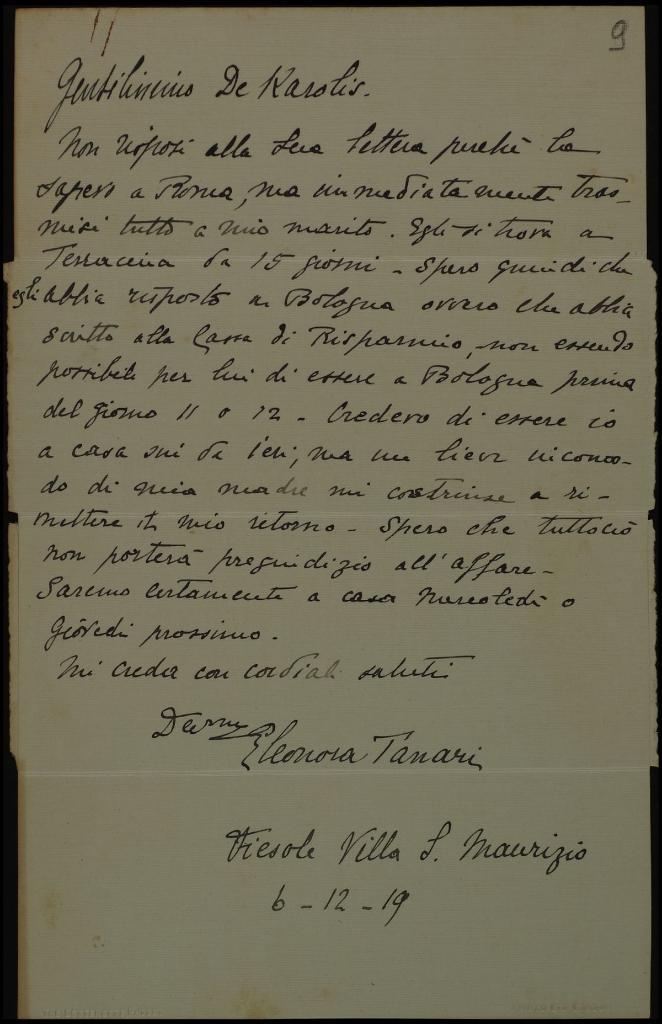 9
Gentilissimo De Karolis.
Non risposi alla Sua lettera perchè La
sapevo a Roma, ma immediatamente tras-
misi tutto a mio marito. Egli si trova a
Terracina da 15 giorni - Spero quindi che
egli abbia risposto a Bologna ovvero che abbia
scritto alla Cassa di Risparmio, non essendo
possibile per lui di essere a Bologna prima
del giorno 11 o 12 - Credevo di essere io
a casa sin da ieri, ma un lieve incomo-
do di mia madre mi costrinse a ri-
mettere il mio ritorno - Spero che tuttociò
non porterà pregiudizio all'affare -
Saremo certamente a casa Mercoledì o
Giovedì prossimo.
Mi creda con cordiali saluti
Dev.ma
Eleonora Tanari
Fiesole Villa S. Maurizio
6 - 12 - 19